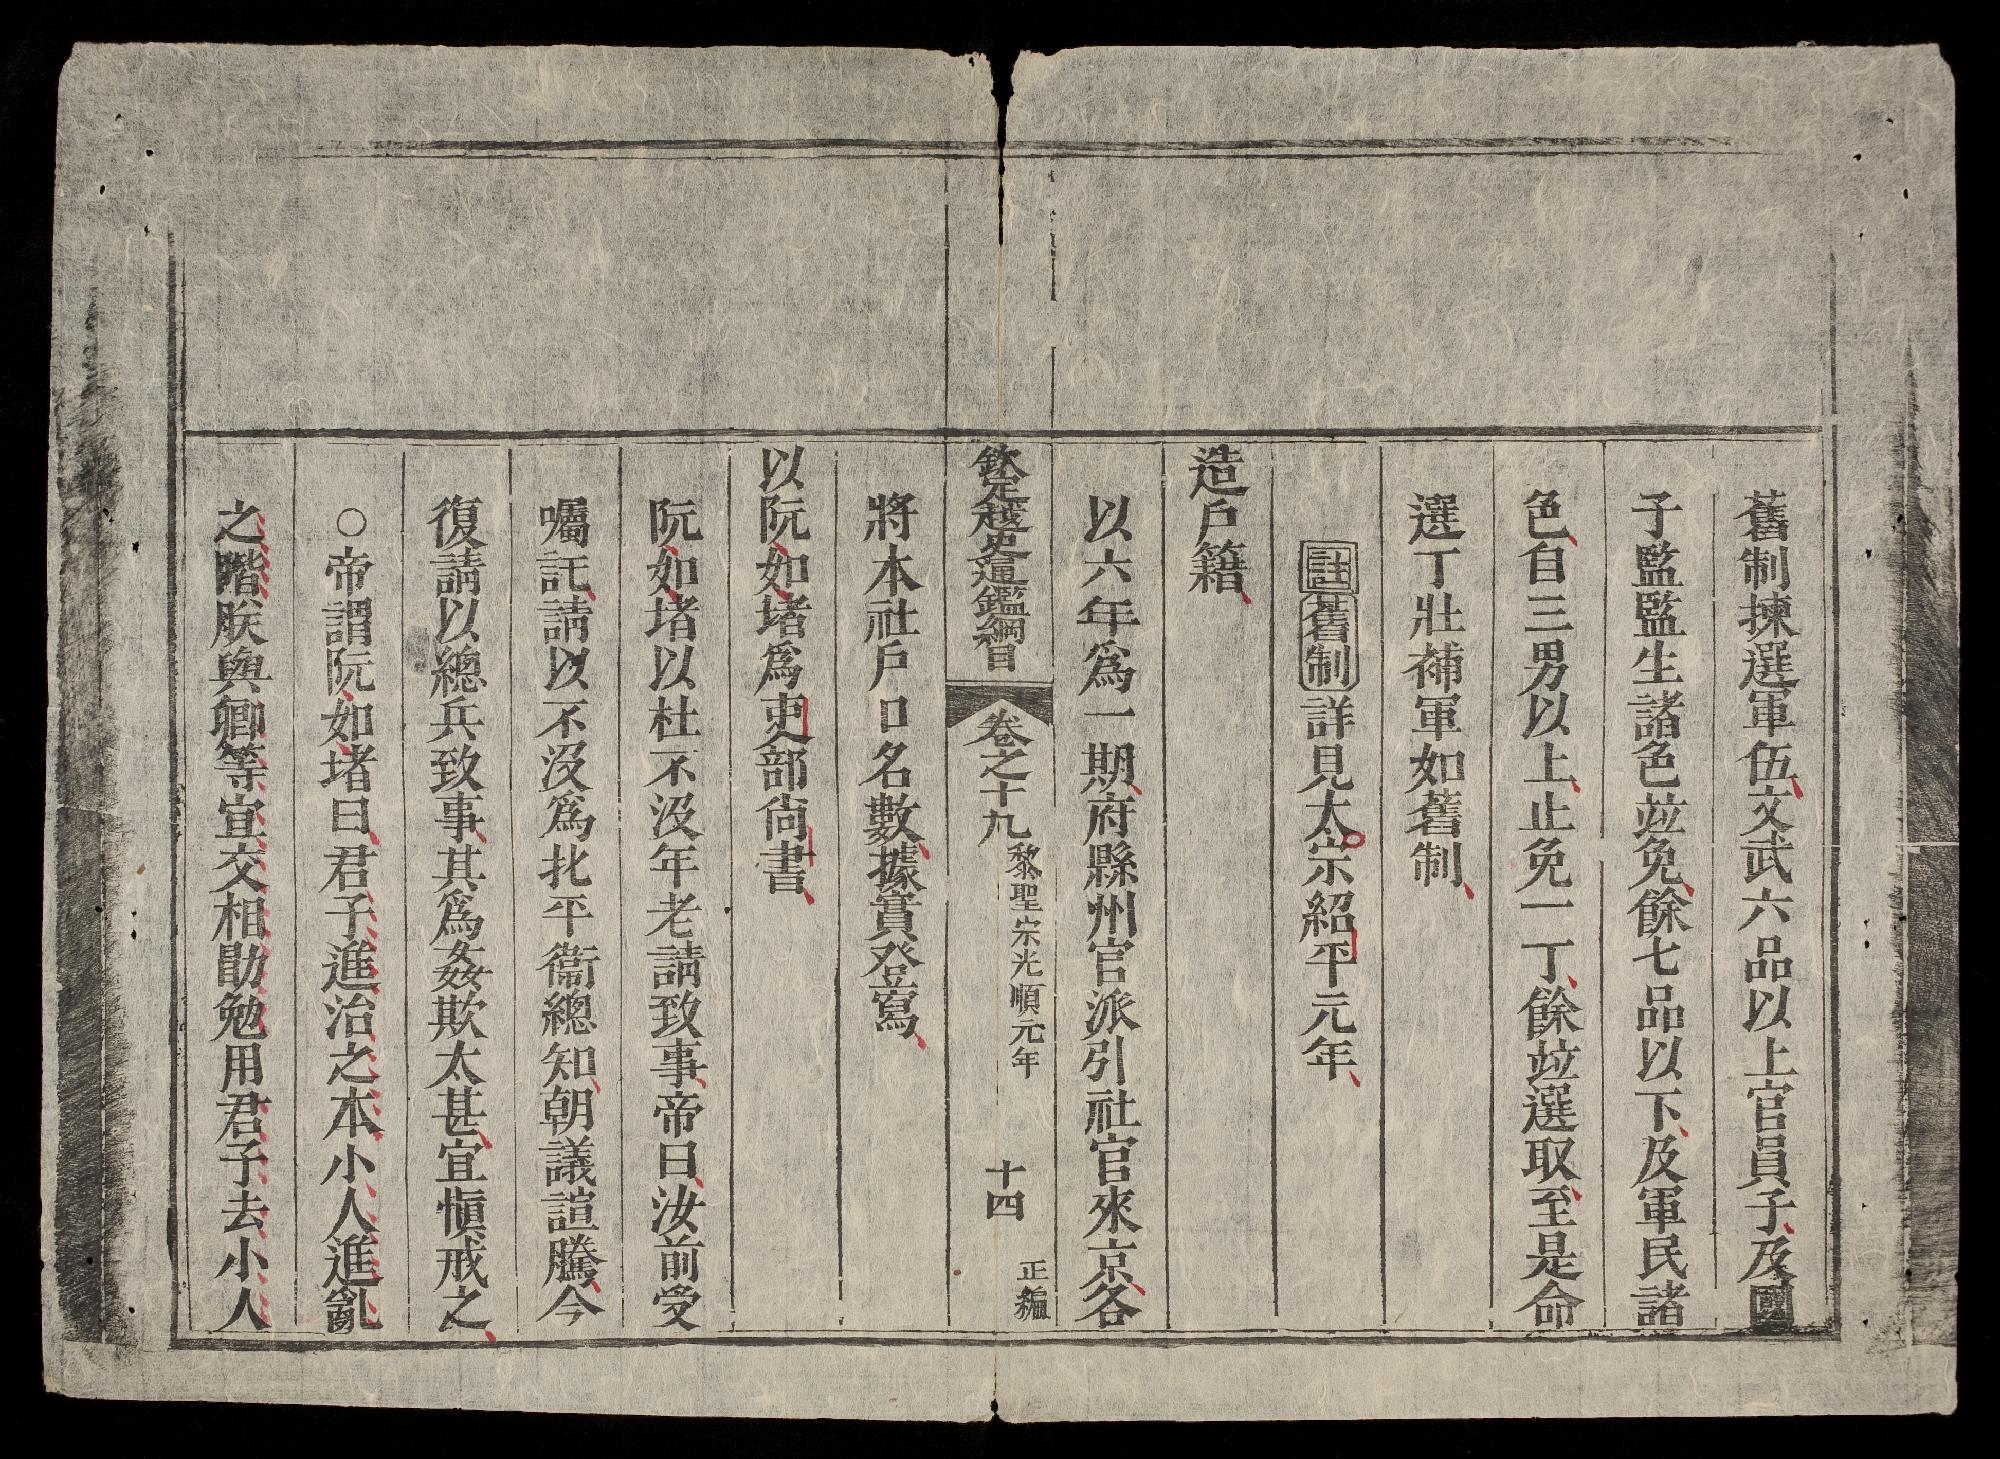 舊制揀選軍伍文武六品以上官員子及國
子監監生諸色竝免餘七品以下及軍民諸
色自三男以上止免一丁餘竝選取至是命
選丁壯補軍如舊制
註舊制詳見太宗紹平元年
造戶籍
以六年爲一期府縣州官派引社官來京各
欽定越史通鑑綱目 卷之十九 黎聖宗光順元年 十四 正編
將本社戶口名數據實登寫
以阮如堵爲吏部尙書
阮如堵以杜不沒年老請致事帝曰汝前受
囑託請以不沒爲北平衞總知朝議諠騰今
復請以總兵致事其爲姦欺太甚宜愼戒之
○帝謂阮如堵曰君子進治之本小人進亂
之階朕與卿等宜交相勖勉用君子去小人